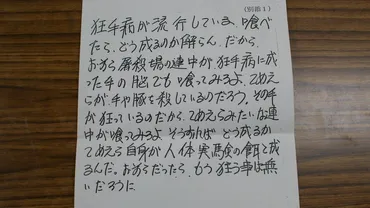 (別冊1)
狂牛病が流行している、喰べ
たら、どう成るのか解らん、だから、
おまえら屠殺場の連中が、狂牛病に
成った牛の脳でも喰ってみろよ、てめえ
らが、牛や豚を殺しているのだろう。その牛
が狂っているのだから、てめえらみたいな連
中が喰ってみろよ そうすれば どう成るか
てめえら自身が人体実験の餌で成
るんだ。おまえらだったら、もう狂う事は無
いだろうに